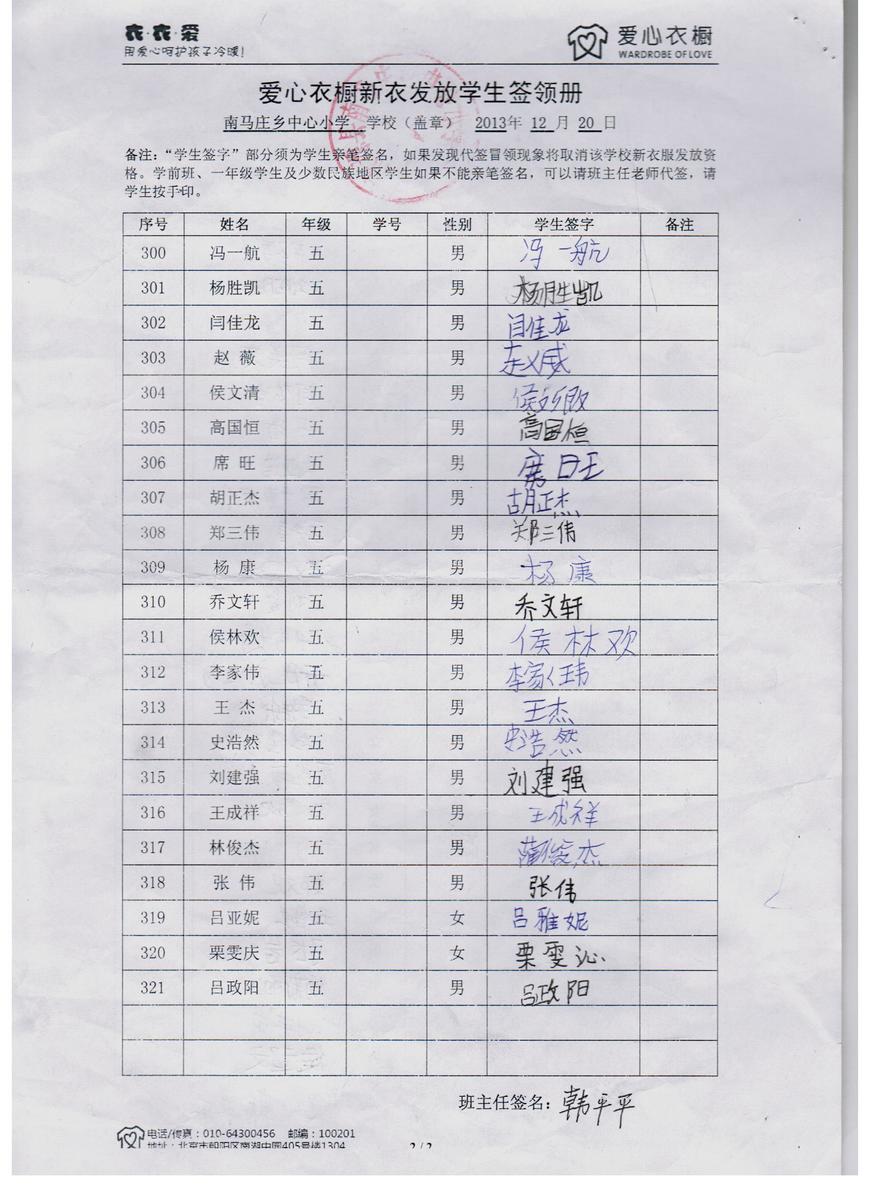 衣·衣·爱
用爱心呵护孩子冷暖!
爱心衣橱
WARDROBE OF LOVE
爱心衣橱新衣发放学生签领册
南马庄乡中心小学 学校（盖章） 2013年 12 月 20 日
备注：“学生签字”部分须为学生亲笔签名，如果发现代签冒领现象将取消该学校新衣服发放资
格。学前班、一年级学生及少数民族地区学生如果不能亲笔签名，可以请班主任老师代签，请
学生按手印。
序号 姓名 年级 学号 性别 学生签字 备注
300 冯一航 五 男 冯一航
301 杨胜凯 五 男 杨胜凯
302 闫佳龙 五 男 闫佳龙
303 赵 薇 五 男 赵威
304 侯文清 五 男
305 高国恒 五 男 高国恒
306 席 旺 五 男 席旺
307 胡正杰 五 男 胡正杰
308 郑三伟 五 男 郑三伟
309 杨 康 五 男 杨康
310 乔文轩 五 男 乔文轩
311 侯林欢 五 男 侯林欢
312 李家伟 五 男 李家伟
313 王 杰 五 男 王杰
314 史浩然 五 男 史浩然
315 刘建强 五 男 刘建强
316 王成祥 五 男 王成祥
317 林俊杰 五 男 蔺俊杰
318 张 伟 五 男 张伟
319 吕亚妮 五 女 吕雅妮
320 栗雯庆 五 女 栗雯沁
321 吕政阳 五 男 吕政阳
班主任签名：韩平平
电话/传真：010-64300456 邮编：100201
地址：北京市朝阳区南湖中园405号楼1304
2 / 2